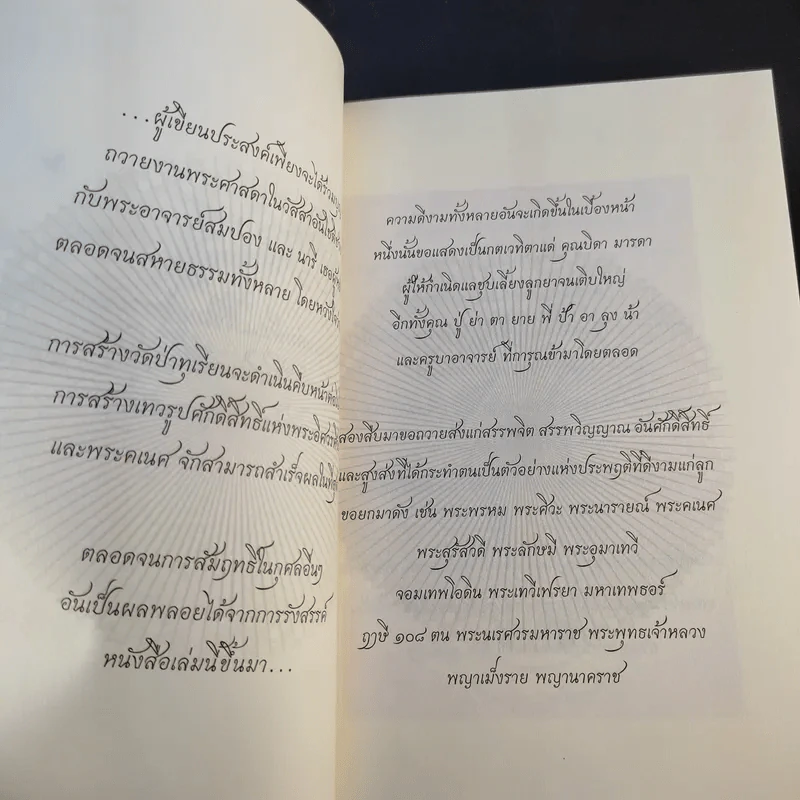 ...ผู้เขียนประสงค์เพียงจะได้ร่วม
ถวายงานพระศาสดาในวัสสาอันโชติช่วง
กับพระอาจารย์สมปอง และ นารี เธอผู้
ตลอดจนสหายธรรมทั้งหลาย โดยหวังใจ
การสร้างวัดป่าทุเรียนจะดำเนินคืบหน้าต่อ
การสร้างเทวรูปศักดิ์สิทธิ์แห่งพระอิศวร
และพระคเนศ จักสามารถสำเร็จผลในที่สุด
ตลอดจนการสัมฤทธิ์ในกุศลอื่นๆ
อันเป็นผลพลอยได้จากการรังสรรค์
หนังสือเล่มนี้ขึ้นมา...
ความดีงามทั้งหลายอันจะเกิดขึ้นในเบื้องหน้า
หนึ่งนั้นขอแสดงเป็นกตเวทิตาแด่ คุณบิดา มารดา
ผู้ให้กำเนิดแลชุบเลี้ยงลูกยาจนเติบใหญ่
อีกทั้งคุณ ปู่ ย่า ตา ยาย พี่ ป้า อา ลุง น้า
และครูบาอาจารย์ ที่การุณข้ามาโดยตลอด
สองสืบมาขอถวายส่งแก่สรรพจิต สรรพวิญญาณ อันศักดิ์สิทธิ์
และสูงส่งที่ได้กระทำตนเป็นตัวอย่างแห่งประพฤติที่ดีงามแก่ลูก
ขอยกมาดัง เช่น พระพรหม พระศิวะ พระนารายณ์ พระคเนศ
พระสุรัสวดี พระลักษมี พระอุมาเทวี
จอมเทพโอดิน พระเทวีเฟรยา มหาเทพธอร์
ฤๅษี ๑๐๘ ตน พระนเรศวรมหาราช พระพุทธเจ้าหลวง
พญาเม็งราย พญานาคราช